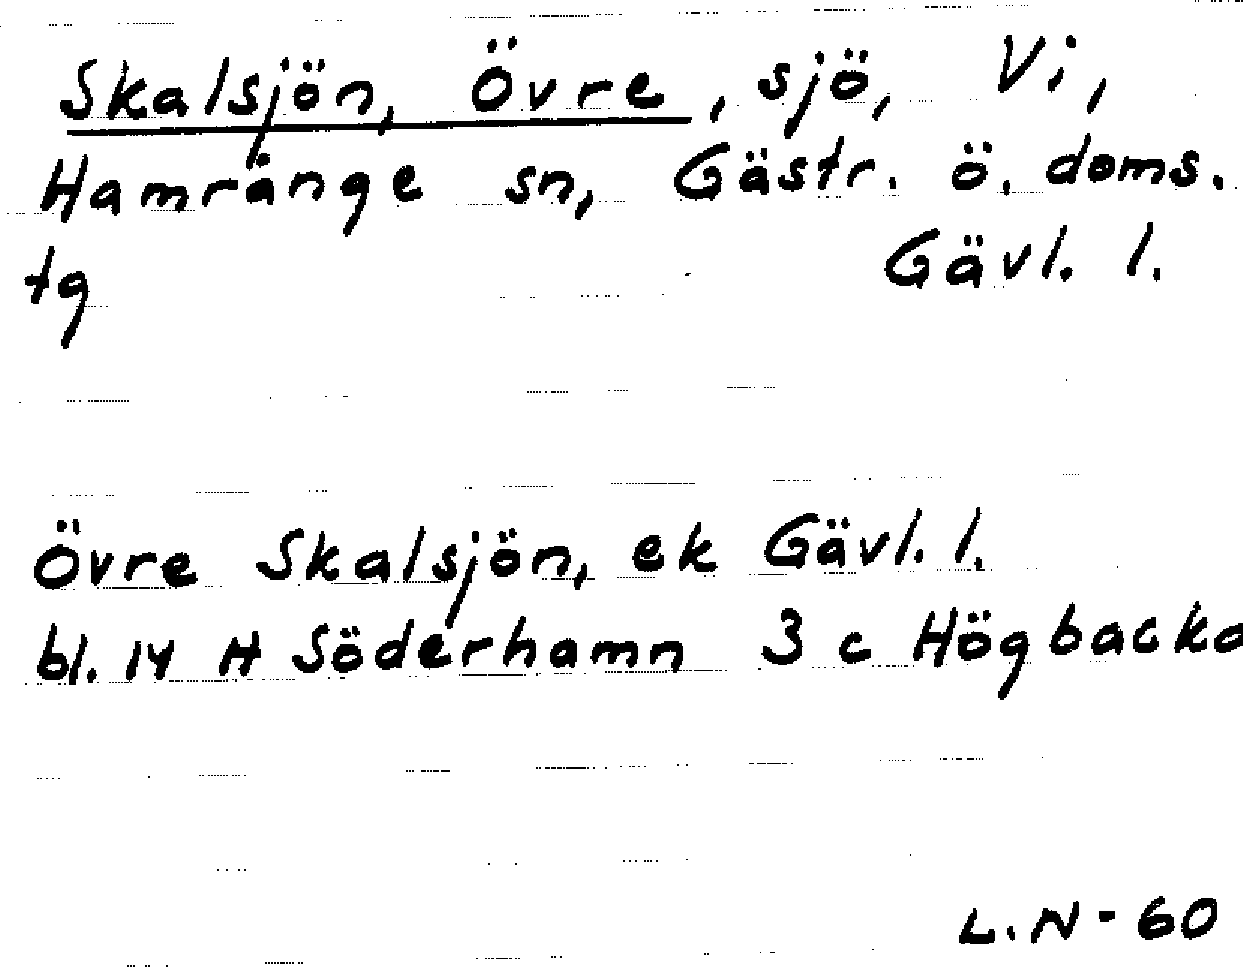 Skalsjön, Övre, sjö, Vi,
Hamrånge sn, Gästr. ö. doms.
tg Gävl. l.
Övre Skalsjön, ek Gävl. l.
bl. 14 H Söderhamn 3 c Högbacka
L.N-60